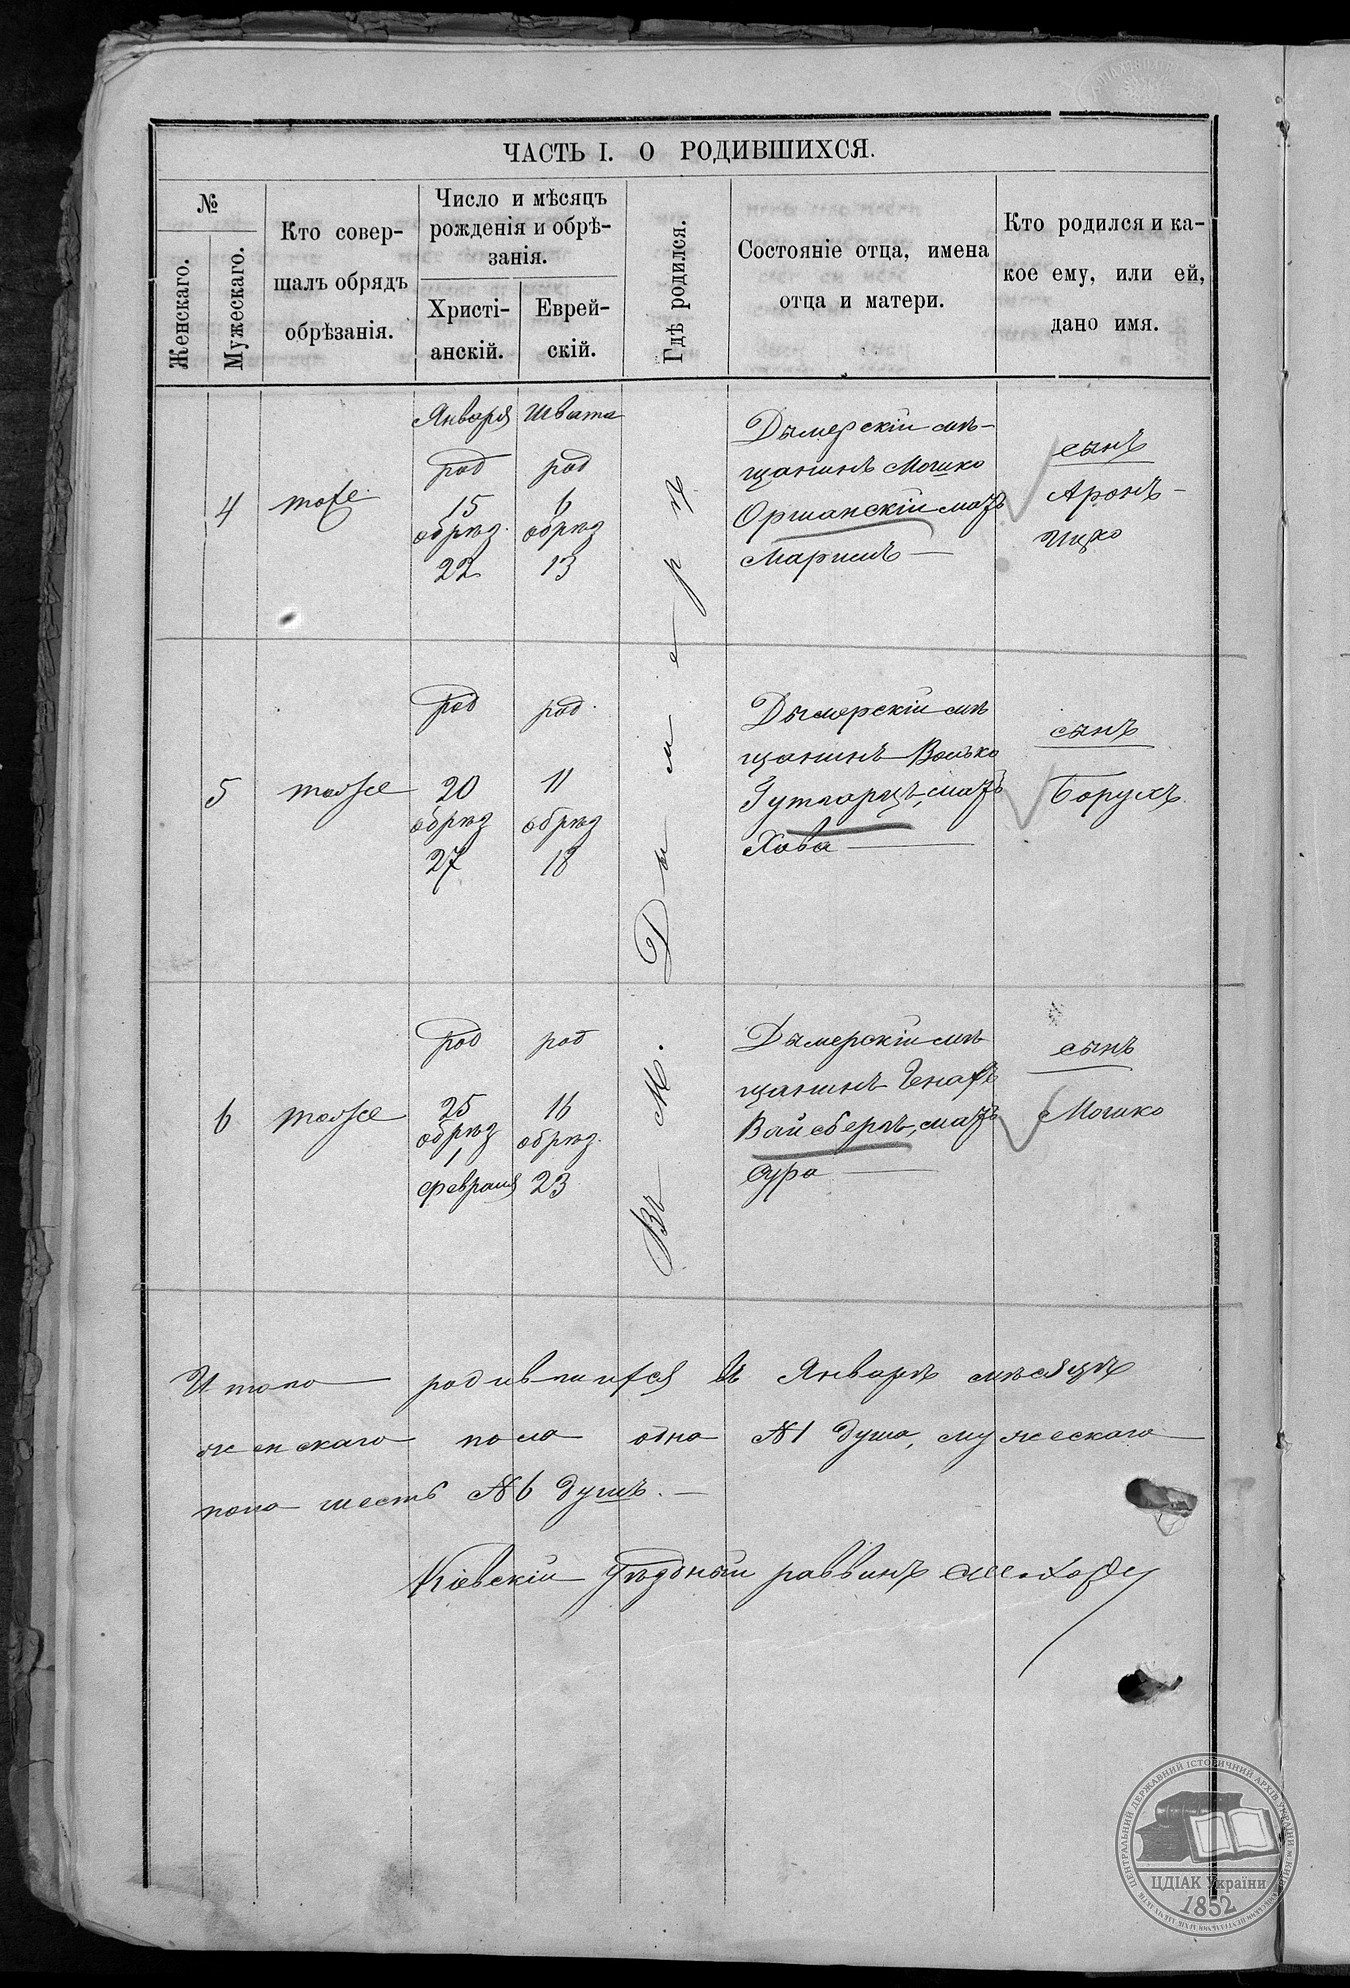 ЧАСТЬ I. О РОДИВШИХСЯ.
№
Женскаго.
Мужескаго.
Кто совер-
шалъ обрядъ
обрѣзанія.
Число и мѣсяцъ
рожденія и обрѣ-
занія.
Христі-
анскій.
Еврей-
скій.
Гдѣ родился.
Состояніе отца, имена
отца и матери.
Кто родился и ка-
кое ему, или ей,
дано имя.
4
тоже
Января
род
15
обрѣз.
22
Швата
род
6
обрѣз
13
Въ М. Дымерѣ
Дымерскій мѣ-
щанинъ Мошко
Оршанскій, мать
Маріимъ
сынъ
Аронъ-
Ицко
5
тоже
род
20
обрѣз
27
род.
11
обрѣз
18
Дымерскій мѣ
щанинъ Волько
Гутгарцъ, мать
Хова
сынъ
Борухъ.
6
тоже
род
25
обрѣз
1
февраля
род
16
обрѣз.
23
Дымерскій мѣ
щанинъ Генахъ
Вайсбергъ, мать
Сура
сынъ
Мошко
Итого родившихся въ Январѣ мѣсяцѣ
женскаго пола одна №1 душа, мужескаго
пола шесть №6 душъ. —
Кіевскій Уѣздный раввинъ
ЦЕНТРАЛЬНИЙ ДЕРЖАВНИЙ ІСТОРИЧНИЙ АРХІВ УКРАЇНИ, м. КИЇВ
ЦДІАК України
1852